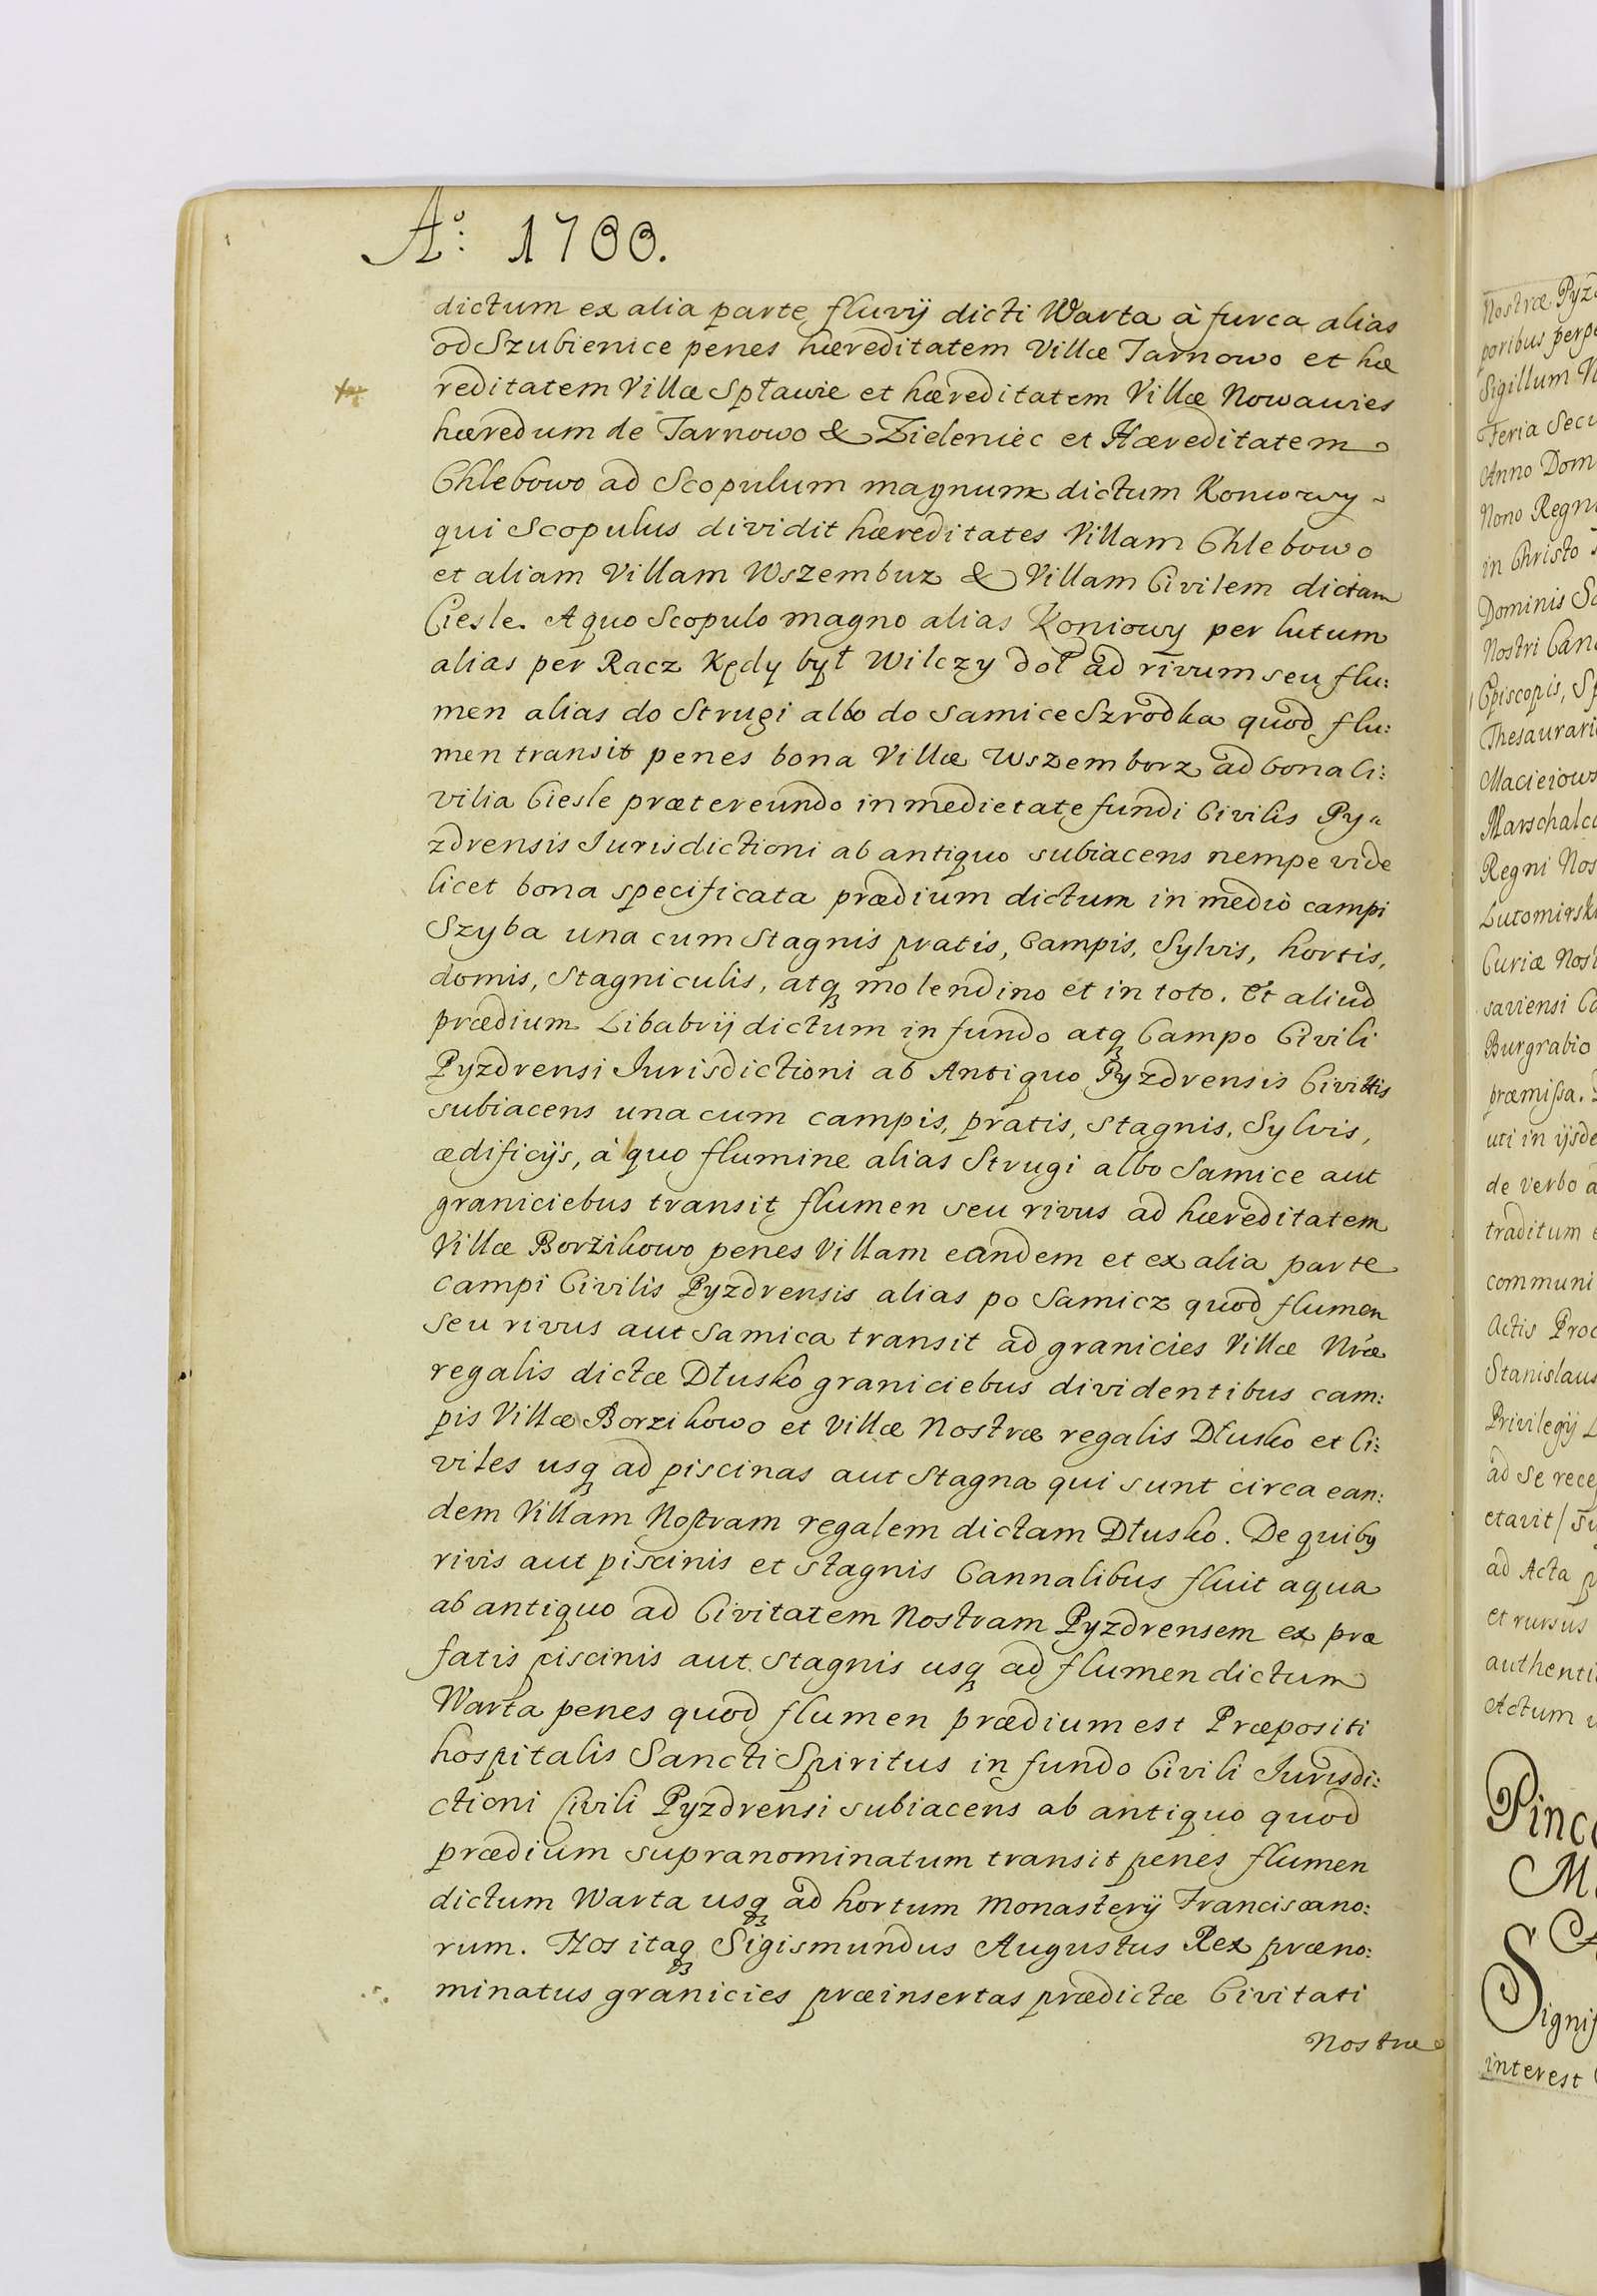 Aº: 1700.
dictum ex alia parte fluvij dicti Warta à furca alias
od Szubienice penes hæreditatem Villæ Tarnowo et hæ
reditatem Villæ Spławie et hæreditatem Villæ Nowawies
hæredum de Tarnowo & Zieleniec et Hæreditatem
Chlebowo ad Scopulum magnum dictum Koniowy
qui Scopulus dividit hæreditates Villam Chlebowo
et aliam Villam Wszembuz & Villam Civilem dictam
Ciesle. A quo Scopulo magno alias Koniowy per lutum
alias per Racz Kędy był Wilczy doł ad rivum seu flu:
men alias do Strugi albo do Samice Szrodka quod flu:
men transit penes bona Villæ Wszemborz ad bona Ci:
vilia Ciesle prætereundo in medietate fundi Civilis Py=
zdrensis Iurisdictioni ab antiquo subiacens nempe vide
licet bona specificata prædium dictum in medio campi
Szyba una cum Stagnis pratis, Campis, Sylvis, hortis,
domis, Stagniculis, atqꝫ molendino et in toto. Et aliud
prædium Libabrij dictum in fundo atqꝫ Campo Civili
Pyzdrensi Iurisdictioni ab Antiquo Pyzdrensis Civilis
subiacens una cum campis, pratis, Stagnis, Sylvis,
ædificijs, à quo flumine alias Strugi albo Samice aut
graniciebus transit flumen seu rivus ad hæreditatem
Villæ Borżikowo penes Villam eandem et ex alia parte
campi Civilis Pyzdrensis alias po Samicz quod flumen
seu rivus aut Samica transit ad granicies Villæ Nræ
regalis dictæ Dłusko graniciebus dividentibus cam:
pis Villæ Borzikowo et Villæ Nostræ regalis Dłusko et Ci:
viles usqꝫ ad piscinas aut Stagna qui sunt circa ean:
dem Villam Nostram regalem dictam Dłusko. De quibꝯ
rivis aut piscinis et stagnis Cannalibus fluit aqua
ab antiquo ad Civitatem Nostram Pyzdrensem ex præ
fatis piscinis aut Stagnis usqꝫ ad flumen dictum
Warta penes quod flumen prædium est Præpositi
hospitalis Sancti Spiritus in fundo Civili Iurisdi:
ctioni Civili Pyzdrensi subiacens ab antiquo quod
prædium supranominatum transit penes flumen
dictum Warta usqꝫ ad hortum Monasterij Franciscano:
rum. Nos itaqꝫ Sigismundus Augustus Rex præno:
minatus granicies præinsertas prædictæ Civitati
Nostræ
Nostræ
Sigillum
Feria
Anno
Nono
in Christo
Dominis
Nostri
Episcopis,
Marschalc
Regni
Curiæ
saviensi
Burgrabio
præmissa.
uti in
de verbo
traditum
communi
Actis
Stanislaus
Privilegij
ad se
etavit
ad Acta
et rursus
Actum
interest